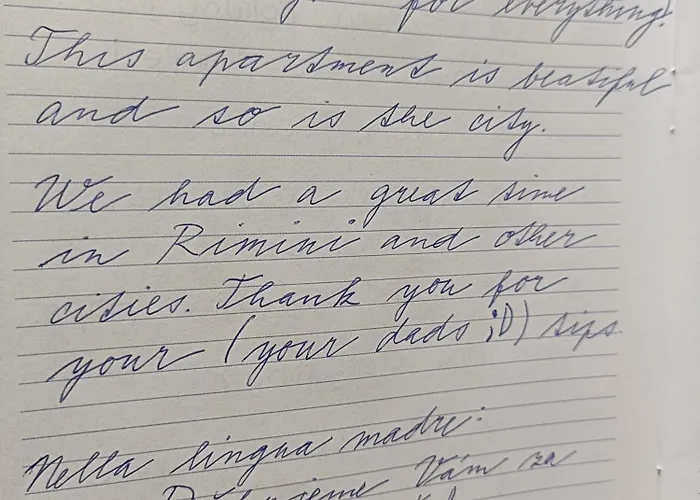 for everything!
This apartment is beatiful
and so is the city.
We had a great time
in Rimini and other
cities. Thank you for
your (your dads ;D) tips
Nella lingua madre:
Děkujeme Vám za